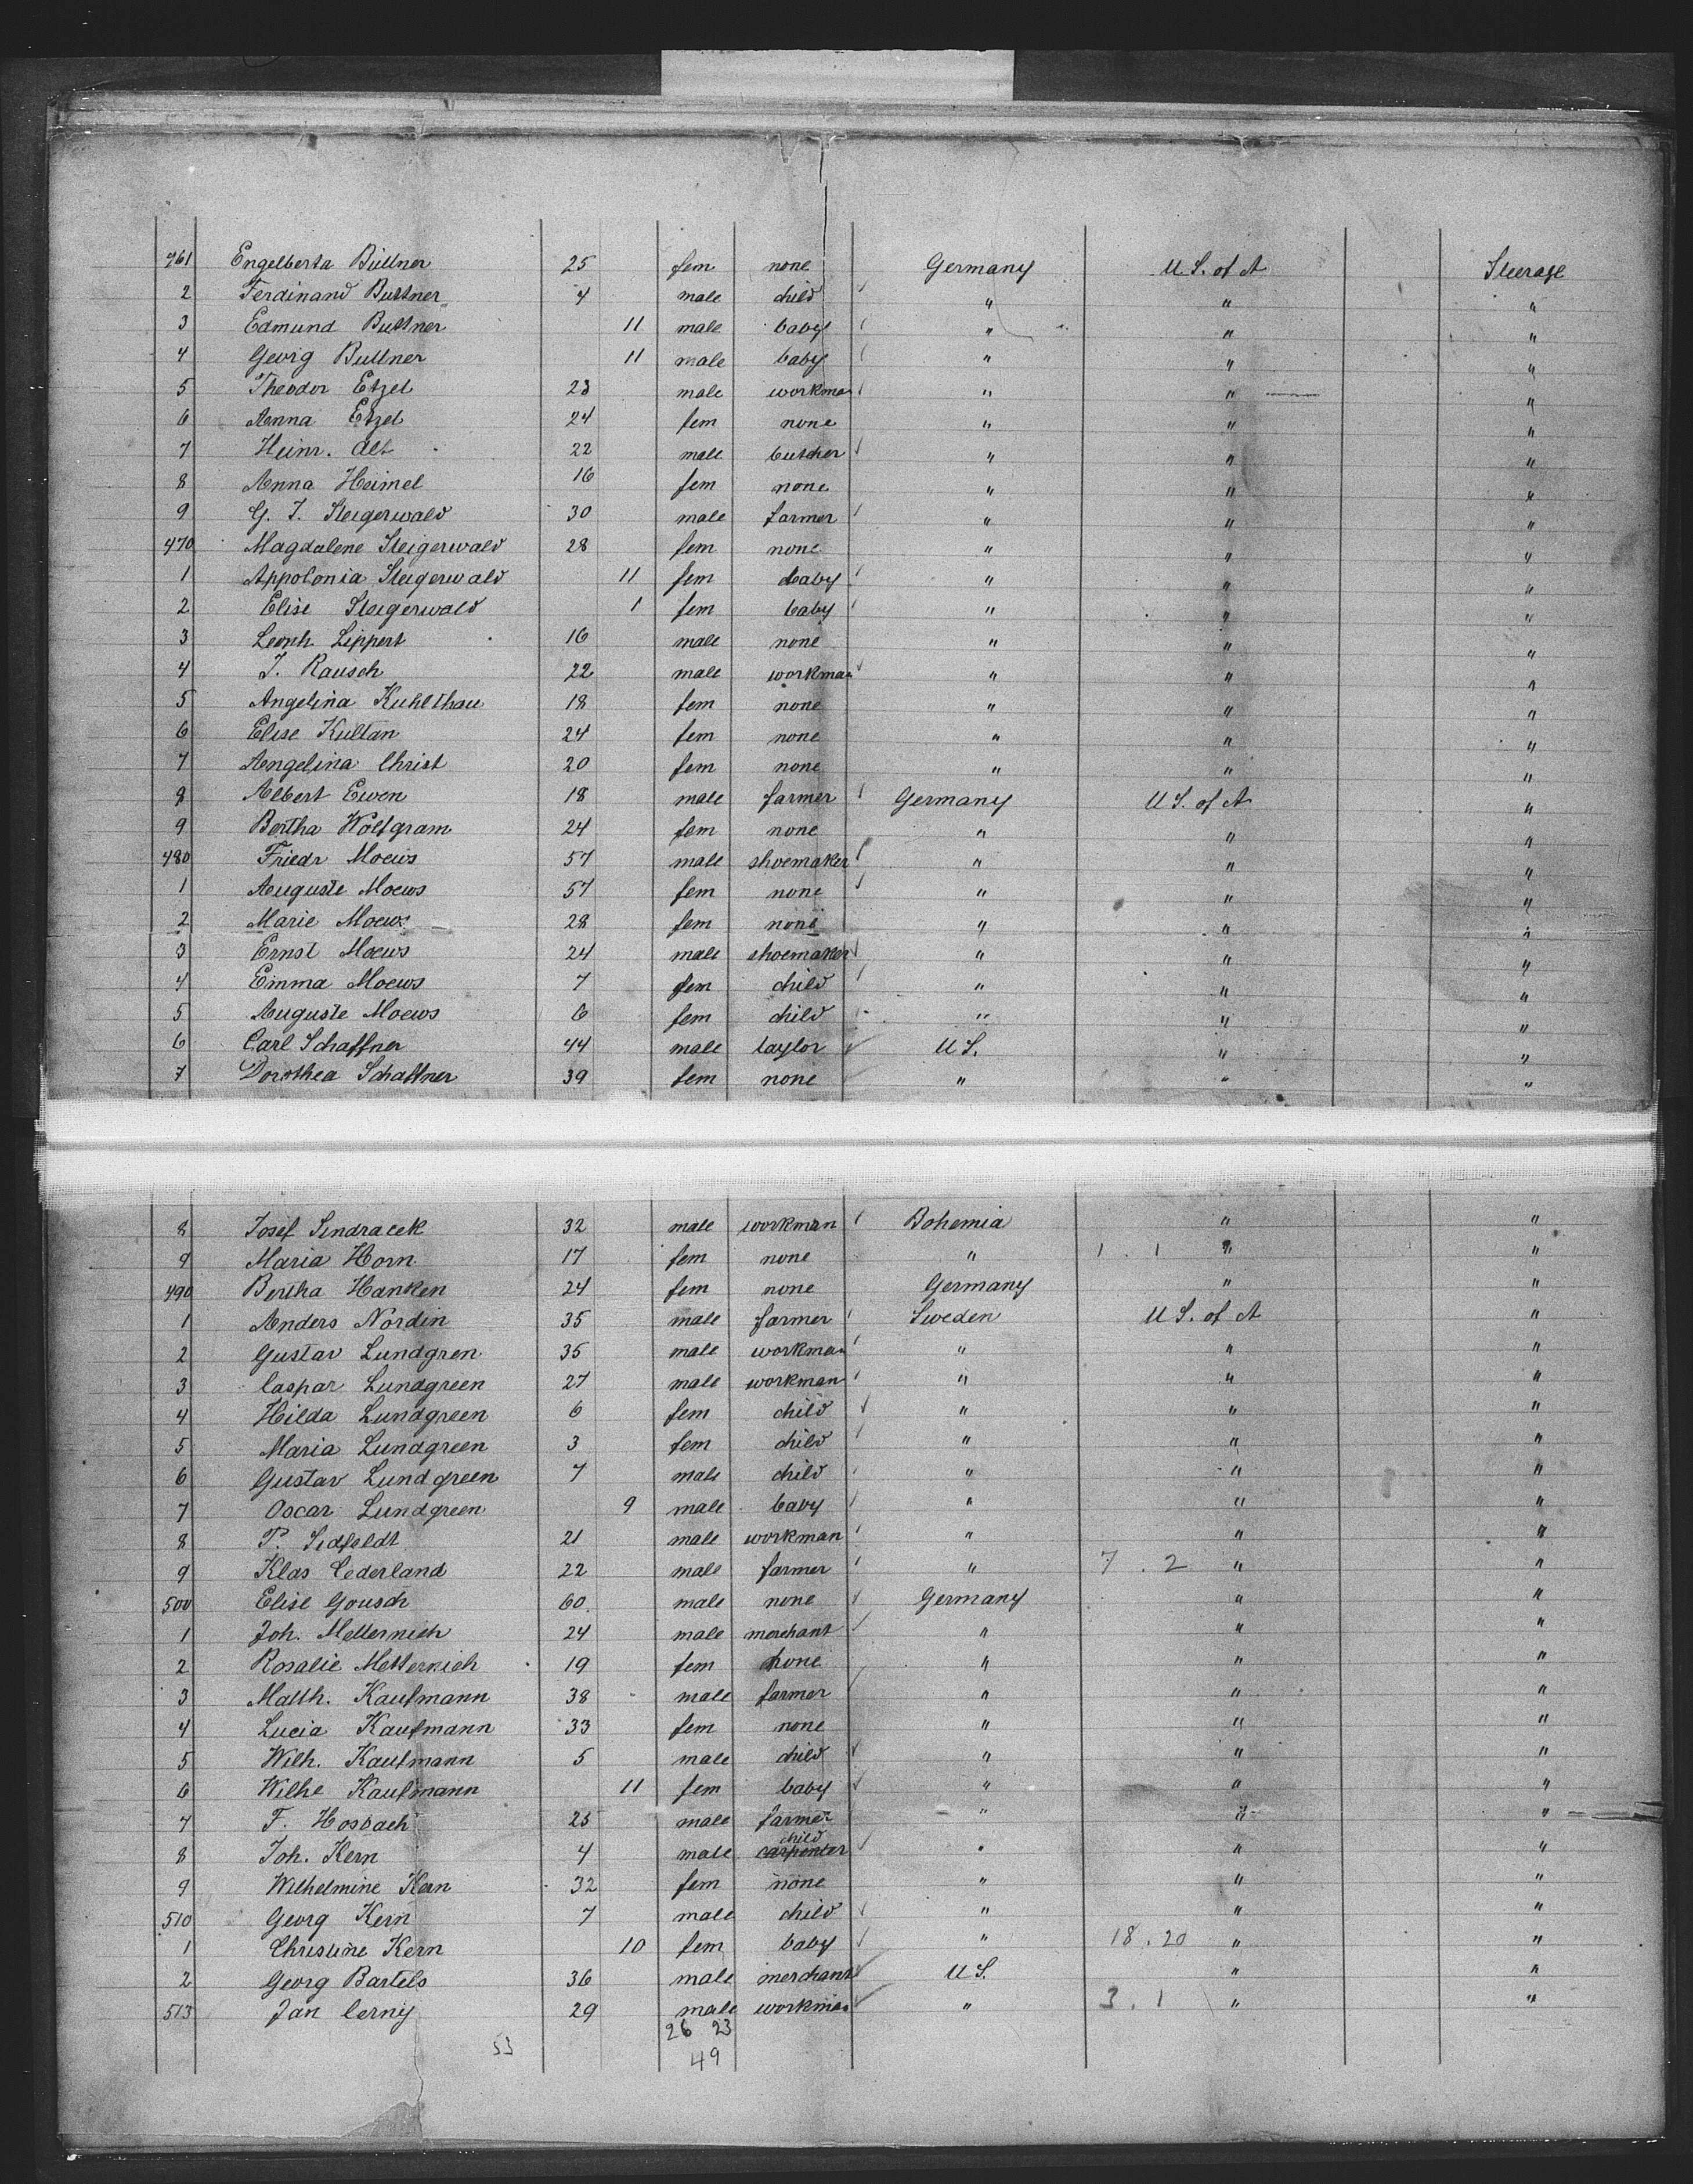 461 Engelberta Büttner 25 fem none Germany U S. of A Steerage
2 Ferdinand Buttner 4 male child " " "
3 Edmund Buttner 11 male baby " " "
4 Georg Buttner 11 male baby " " "
5 Theodor Etzel 23 male workman " " "
6 Anna Etzel 24 fem none " " "
7 Heinr. Alt 22 male butcher " " "
8 Anna Heimel 16 fem none " " "
9 G. J. Steigerwald 30 male farmer " " "
470 Magdalene Steigerwald 28 fem none " " "
1 Appolonia Steigerwald 11 fem baby " " "
2 Elise Steigerwald 1 fem baby " " "
3 Leonh Lippert 16 male none " " "
4 J. Rausch 22 male workman " " "
5 Angelina Kuhlthau 18 fem none " " "
6 Elise Kultan 24 fem none " " "
7 Angelina Christ 20 fem none " " "
8 Albert Ewen 18 male farmer Germany U S. of A "
9 Bertha Wolfgram 24 fem none " " "
480 Friedr Moews 57 male shoemaker " " "
1 Auguste Moews 57 fem none " " "
2 Marie Moews 28 fem none " " "
3 Ernst Moews 24 male shoemaker " " "
4 Emma Moews 7 fem child " " "
5 Auguste Moews 6 fem child " " "
6 Carl Schaffner 44 male taylor U S. " "
7 Dorothea Schaffner 39 fem none " " "
8 Josef Sindracek 32 male workman Bohemia " "
9 Maria Horn 17 fem none " 1 . 1 " "
490 Bertha Hanken 24 fem none Germany " "
1 Anders Nordin 35 male farmer Sweden U S. of A "
2 Gustav Lundgren 35 male workman " " "
3 Caspar Lundgreen 27 male workman " " "
4 Hilda Lundgreen 6 fem child " " "
5 Maria Lundgreen 3 fem child " " "
6 Gustav Lundgreen 7 male child " " "
7 Oscar Lundgreen 9 male baby " " "
8 P. Sidfeldt 21 male workman " " "
9 Klas Cederland 22 male farmer " 7 . 2 " "
500 Elise Gousch 60 male none Germany " "
1 Joh. Metternich 24 male merchant " " "
2 Rosalie Metternich 19 fem none " " "
3 Matth. Kaufmann 38 male farmer " " "
4 Lucia Kaufmann 33 fem none " " "
5 Wilh. Kaufmann 5 male child " " "
6 Wilhe Kaufmann 11 fem baby " " "
7 F. Hosbach 25 male farmer " " "
8 Joh. Kern 4 male carpenter child " " "
9 Wilhelmine Kern 32 fem none " " "
510 Georg Kern 7 male child " " "
1 Christine Kern 10 fem baby " 18 . 20 " "
2 Georg Bartels 36 male merchant U S. " "
513 Jan Cerny 29 male workman " 3 . 1 " "
26 23
53 49